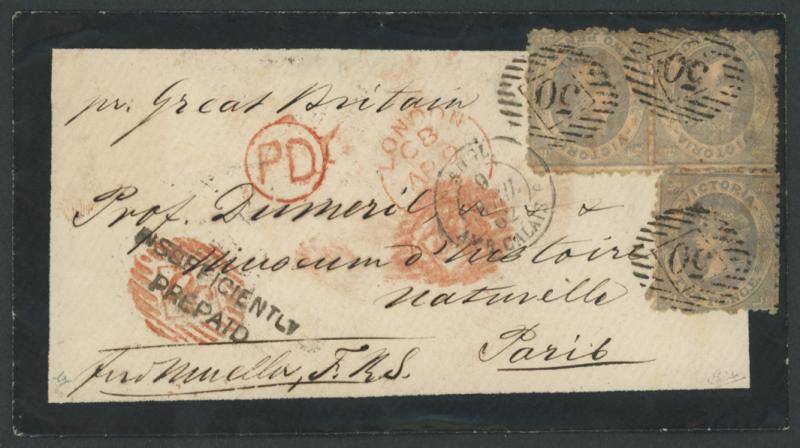 pr. Great Britain
PD
LONDON
CB
AP
Prof. Dumeril, & &
Musoeum d'histoire
naturelle
Paris
INSUFFICIENTLY
PREPAID
Ferd Mueller, F.R.S.
VICTORIA
VICTORIA
VICTORIA
50
50
50
CALAIS